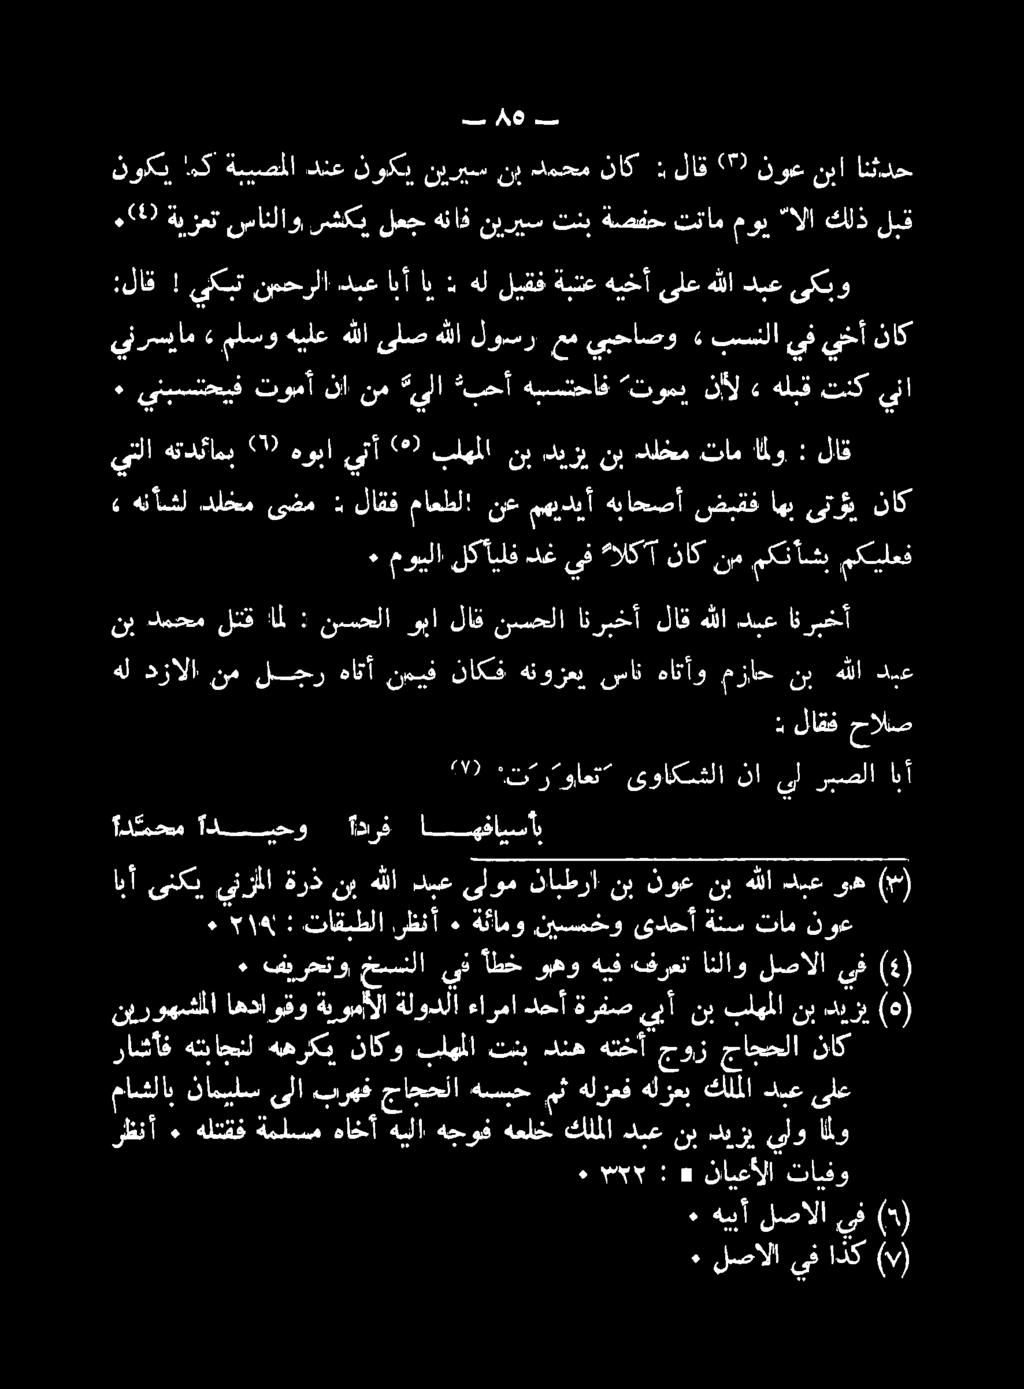 — ٨٥ —
حدثنا ابن عون (٣) قال : كان محمد بن سيرين يكون عند المصيبة كما يكون
قبل ذلك الاّ يوم ماتت حفصة بنت سيرين فانه جعل يكشر والناس تعزية (٤) ٠
وبكى عبد الله على أخيه عتبة فقيل له : يا أبا عبد الرحمن تبكي ! قال:
كان أخي في النسب ، وصاحبي مع رسول الله صلى الله عليه وسلم ، مايسرني
اني كنت قبله ، لأن يموتَ فاحتسبه أحبُّ اليَّ من ان أموت فيحتسبني ٠
قال : ولما مات مخلد بن يزيد بن المهلب (٥) أتي ابوه (٦) بمائدته التي
كان يؤتى بها فقبض أصحابه أيديهم عن الطعام فقال : مضى مخلد لشأنه ،
فعليكم بشأنكم من كان آكلاً في غد فليأكل اليوم ٠
أخبرنا عبد الله قال أخبرنا الحسن قال ابو الحسن : لما قتل محمد بن
عبد الله بن حازم وأتاه ناس يعزونه فكان فيمن أتاه رجل من الازد له
صلاح فقال :
أبا الصبر لي ان الشكاوى تعاوَرَتْ (٧)
بأسيافها فرداً وحيداً محمّداً
(٣) هو عبد الله بن عون بن ارطبان مولى عبد الله بن ذرة المزني يكنى أبا
عون مات سنة أحدى وخمسين ومائة ٠ أنظر الطبقات : ٢١٩ ٠
(٤) في الاصل والنا تعرف فيه وهو خطأ في النسخ وتحريف ٠
(٥) يزيد بن المهلب بن أبي صفرة أحد امراء الدولة الأموية وقوادها المشهورين
كان الحجاج زوج أخته هند بنت المهلب وكان يكرهه لنجابته فأشار
على عبد الملك بعزله فعزله ثم حبسه الحجاج فهرب الى سليمان بالشام
ولما ولي يزيد بن عبد الملك خلعه فوجه اليه أخاه مسلمة فقتله ٠ أنظر
وفيات الأعيان ■ : ٣٢٢ ٠
(٦) في الاصل أبيه ٠
(٧) كذا في الاصل ٠